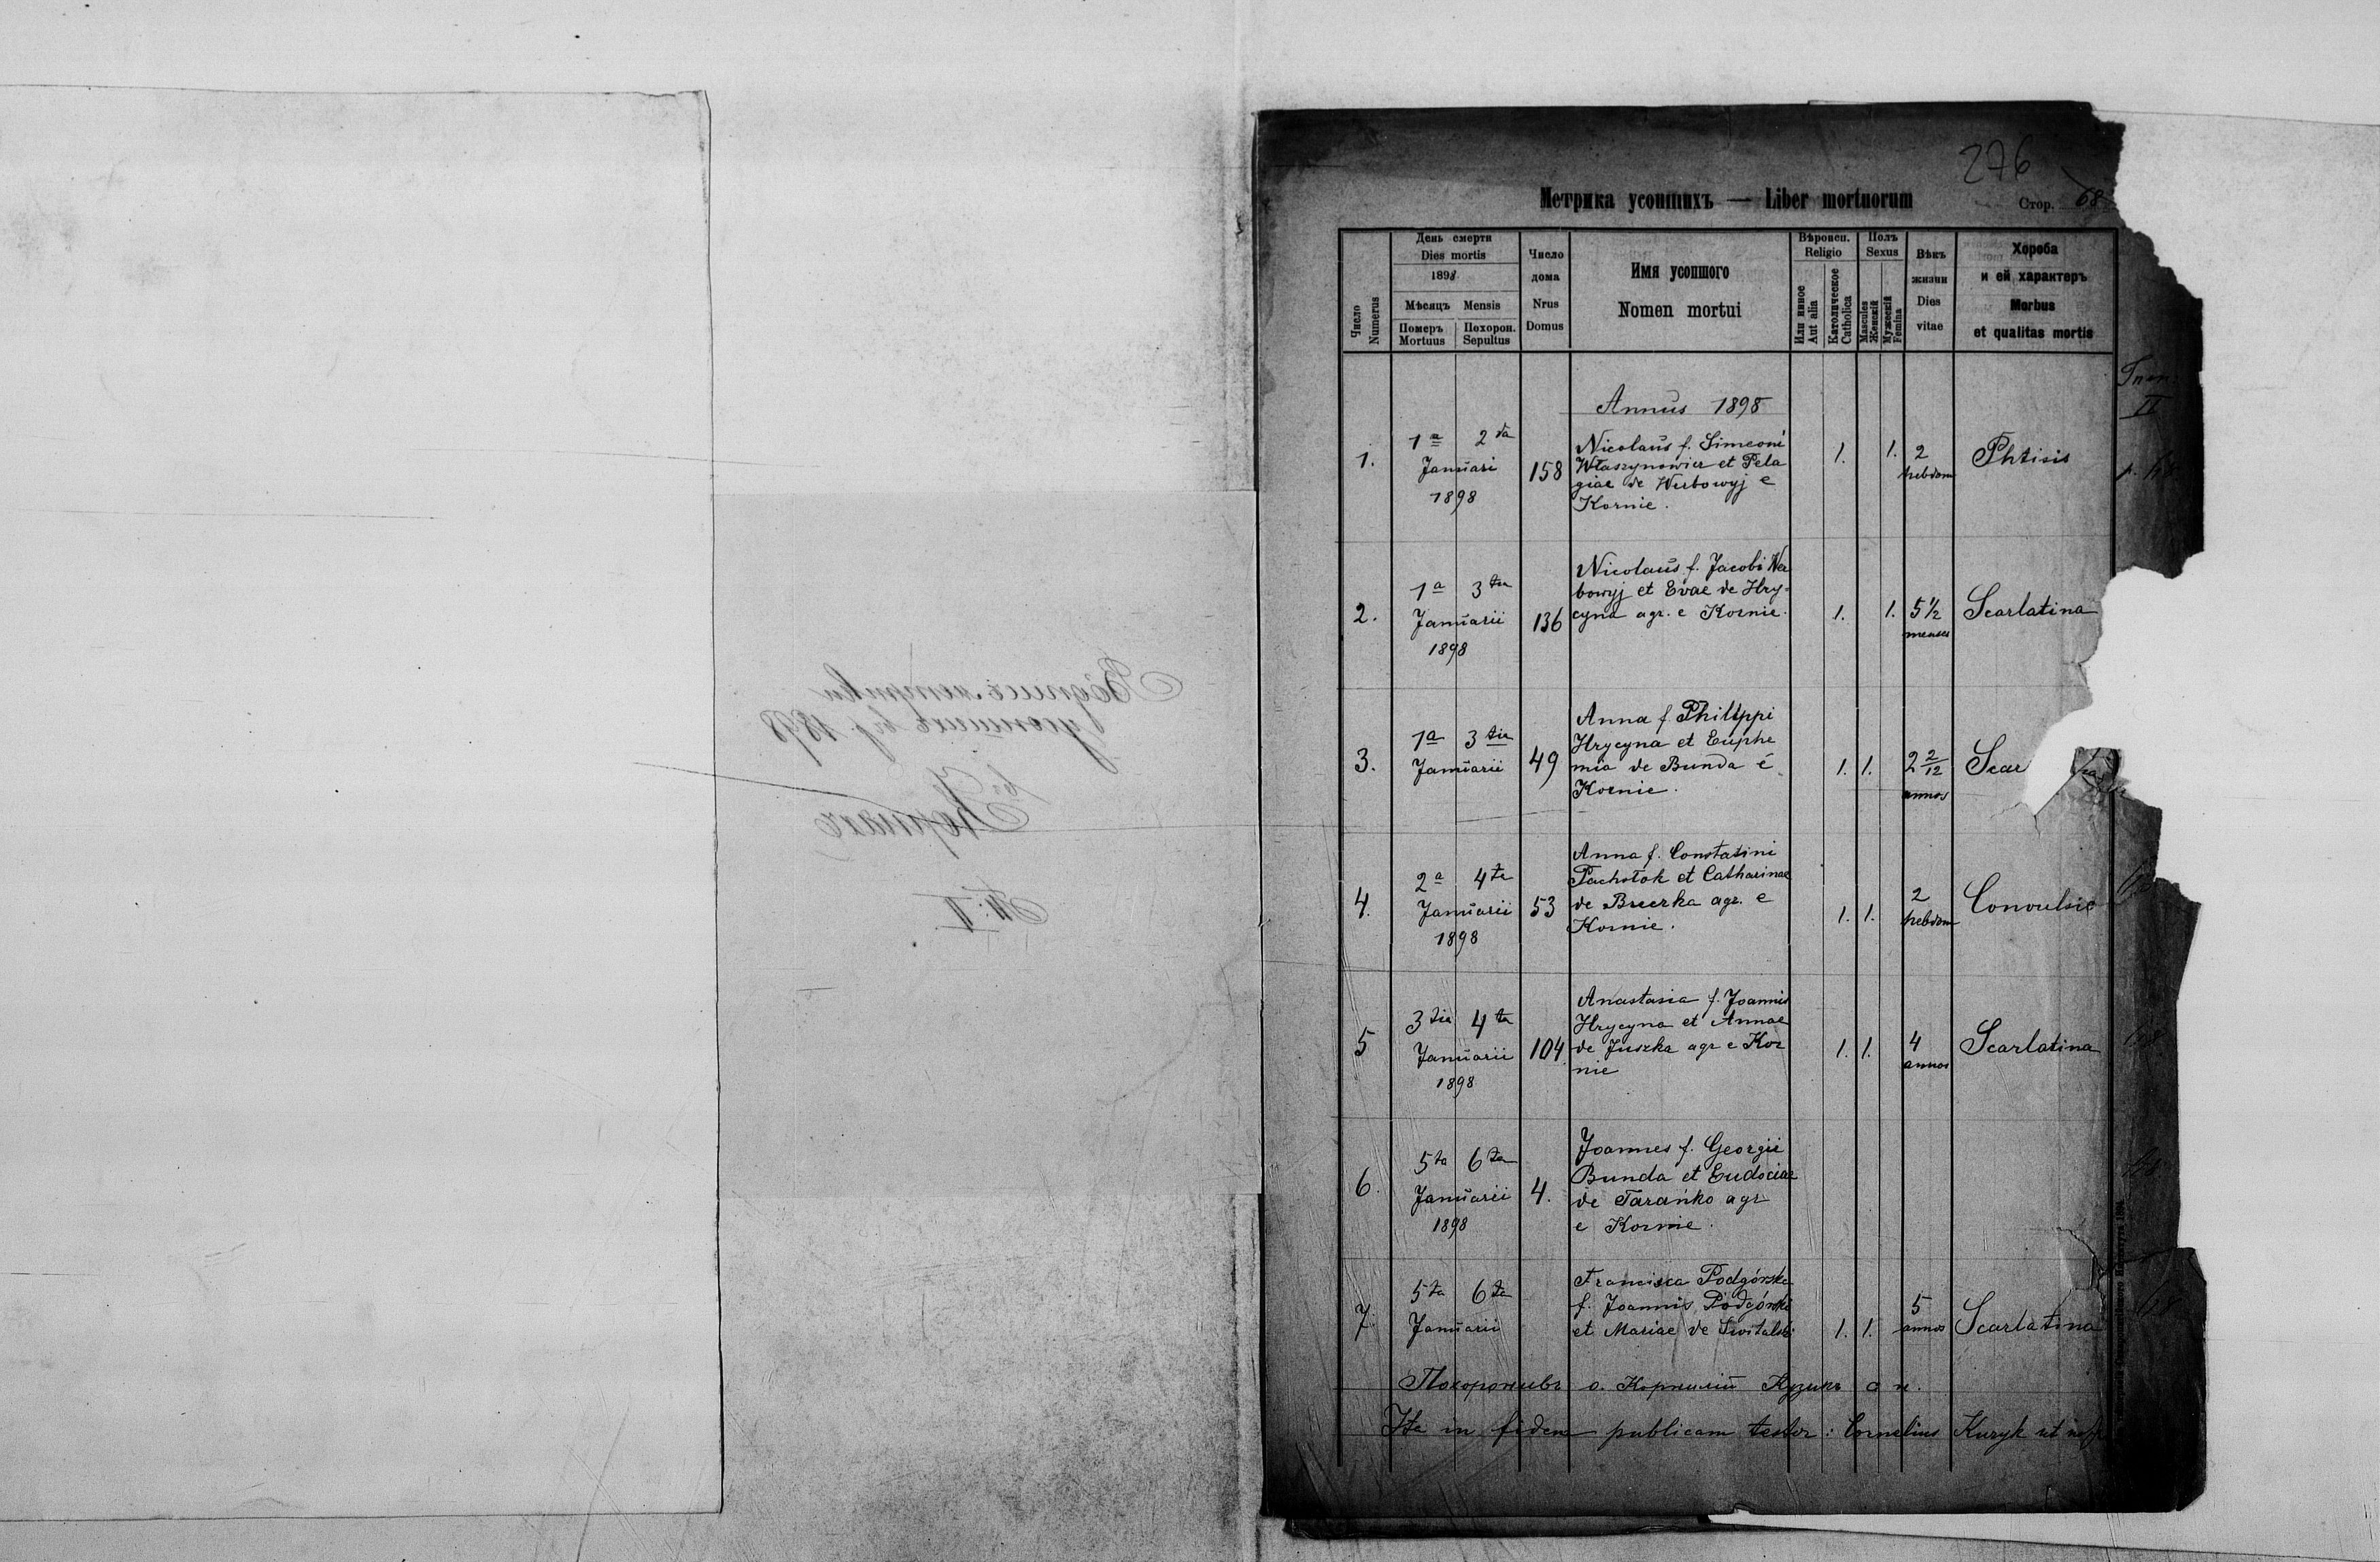 276
Метрика усопшихъ — Liber mortuorum
Стор. 68
Число Numerus
День смерти
Dies mortis
1898
Мѣсяцъ Mensis
Померъ Mortuus
Похорон. Sepultus
Число дома
Nrus Domus
Имя усопшого
Nomen mortui
Вѣроисп.
Religio
Или инное Aut alia
Католическое Catholica
Полъ
Sexus
Masculus Женскій
Мужескій Femina
Вѣкъ жизни
Dies vitae
Хороба
и ей характеръ
Morbus
et qualitas mortis
Annus 1898
1. 1a 2da Januari 1898 158
Nicolaus f. Simeoni
Właszynowicz et Pela
giae de Werbowyj e
Kornie.
1. 1. 2 hebdom Phtisis
2. 1a 3tia Januarii 1898 136
Nicolaus f. Jacobi Wer
bowyj et Evae de Hry-
cyna agr. e Kornie.
1. 1. 5 1/2 menses Scarlatina
3. 1a 3tia Januarii 49
Anna f. Philippi
Hrycyna et Euphe
mia de Bunda e
Kornie.
1. 1. 2 2/12 annos Scar
4. 2a 4ta Januarii 1898 53
Anna f. Constatini
Pachołok et Catharinae
de Breczka agr. e
Kornie.
1. 1. 2 hebdom Convulsio
5 3tia 4ta Januarii 1898 104
Anastasia f. Joannis
Hrycyna et Annae
de Juszka agr e Kor
nie
1. 1. 4 annos Scarlatina
6. 5ta 6ta Januarii 1898 4.
Joannes f. Georgii
Bunda et Eudociae
de Tarańko agr
e Kornie.
7. 5ta 6ta Januarii
Francisca Podgórska
f. Joannis Podgórski
et Mariae de Świtalski
1. 1. 5 annos Scarlatina
Похоронивъ о. Корнилій Кузыкъ
Ita in fidem publicam testor: Cornelius Kuzyk ut